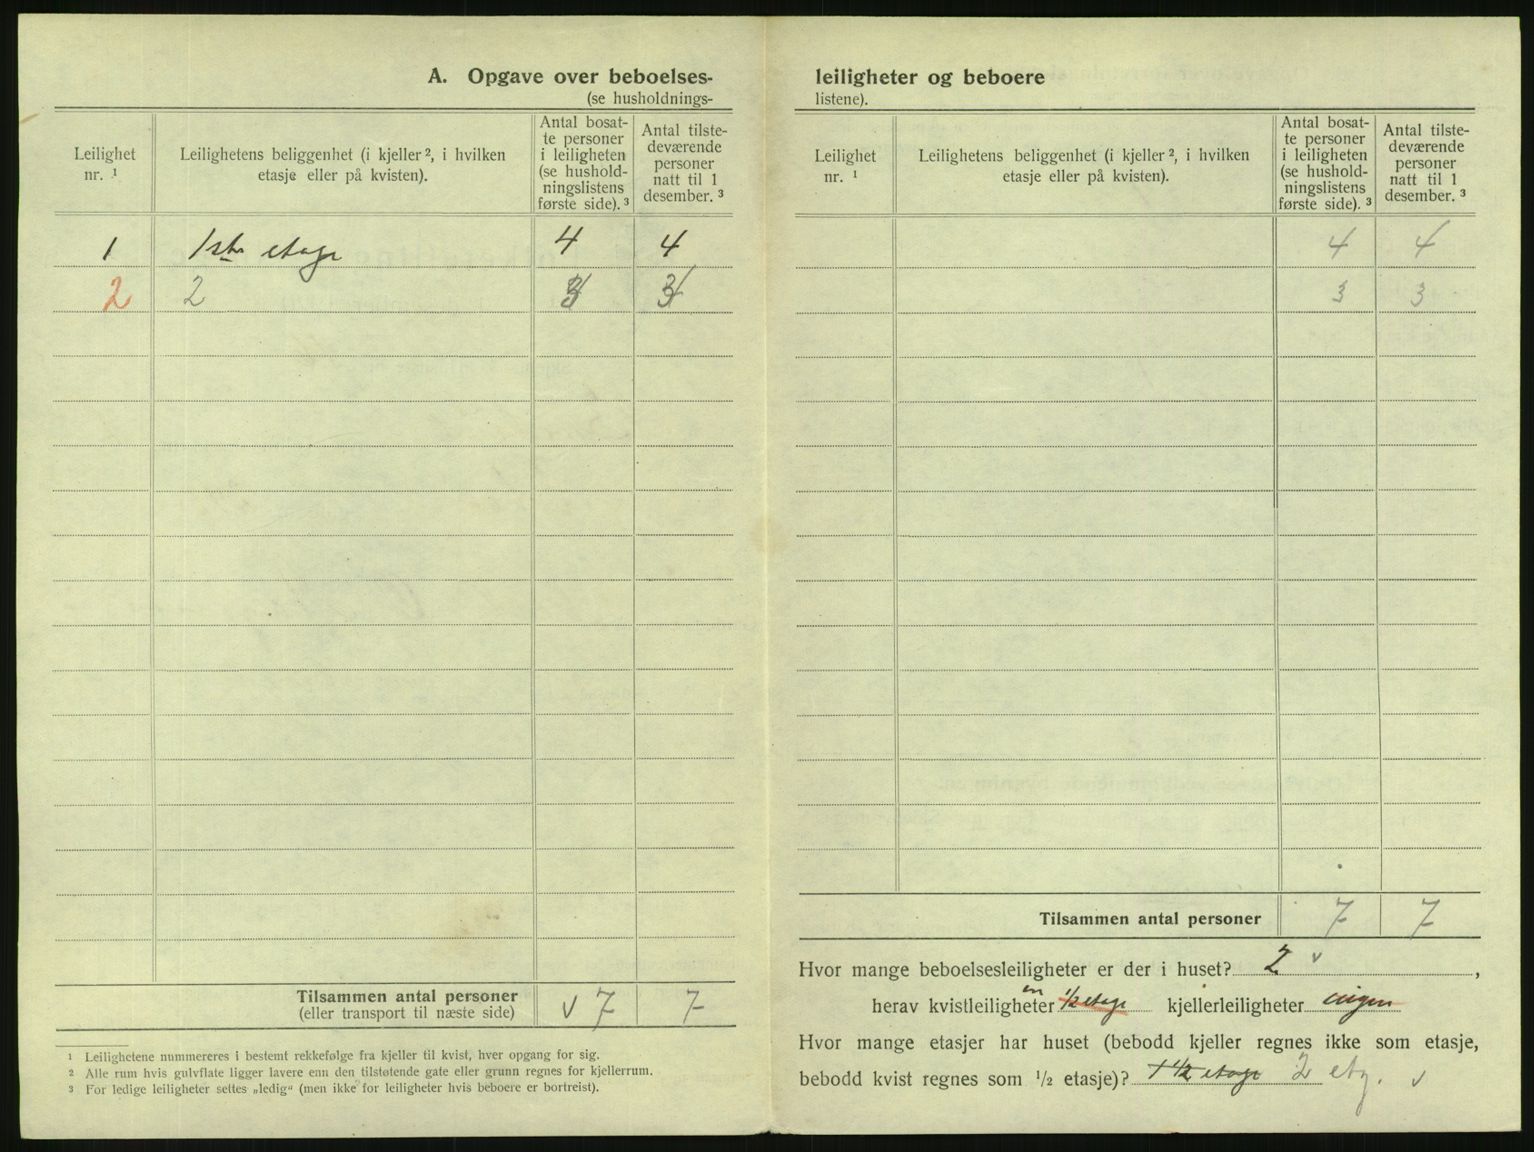 A. Opgave over beboelses-
(se husholdnings-
Leilighet
nr. ¹
Leilighetens beliggenhet (i kjeller ², i hvilken
etasje eller på kvisten).
Antal bosat-
te personer
i leiligheten
(se hushold-
ningslistens
første side). ³
Antal tilste-
deværende
personer
natt til 1
desember. ³
1 1ste etage 4 4
2 2 3 3
Tilsammen antal personer
(eller transport til næste side)
v 7 7
¹ Leilighetene nummereres i bestemt rekkefølge fra kjeller til kvist, hver opgang for sig.
² Alle rum hvis gulvflate ligger lavere enn den tilstøtende gate eller grunn regnes for kjellerrum.
³ For ledige leiligheter settes „ledig“ (men ikke for leiligheter hvis beboere er bortreist).
leiligheter og beboere
listene).
Leilighet
nr. ¹
Leilighetens beliggenhet (i kjeller ², i hvilken
etasje eller på kvisten).
Antal bosat-
te personer
i leiligheten
(se hushold-
ningslistens
første side). ³
Antal tilste-
deværende
personer
natt til 1
desember. ³
4 4
3 3
Tilsammen antal personer 7 7
Hvor mange beboelsesleiligheter er der i huset? 2 v ,
herav kvistleiligheter en 1/2 etage kjellerleiligheter ingen
Hvor mange etasjer har huset (bebodd kjeller regnes ikke som etasje,
bebodd kvist regnes som 1/2 etasje)? 1 1/2 etage 2 etg. v